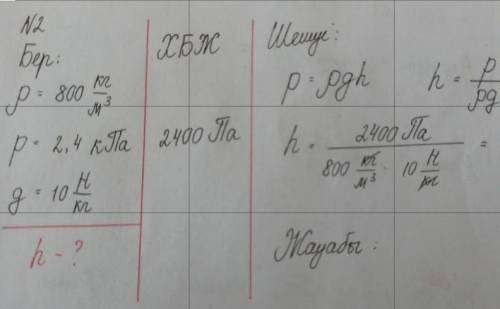 №2
Бер:
ρ = 800 кг/м³
p = 2,4 кПа
g = 10 Н/кг
h - ?
ХБЖ
2400 Па
Шешуі:
p = ρgh h = p/ρg
h = 2400 Па / 800 кг/м³ · 10 Н/кг =
Жауабы: